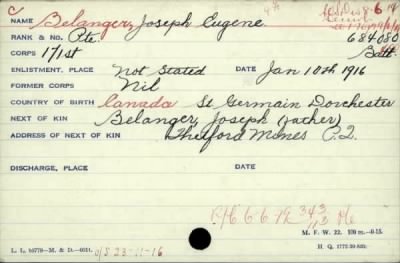 C
NAME Belanger, Joseph Eugene
RANK & No. Pte. 684080
CORPS 171st Batt.
ENLISTMENT, PLACE Not Stated DATE Jan 10th 1916
FORMER CORPS Nil
COUNTRY OF BIRTH Canada St Germain Dorchester
NEXT OF KIN Belanger, Joseph (father)
ADDRESS OF NEXT OF KIN Thetford Mines P.Q.
DISCHARGE, PLACE DATE
M. F. W. 22. 100 m.—6-15.
L. L. 16778—M. & D.—6011. H. Q. 1772-39-832.